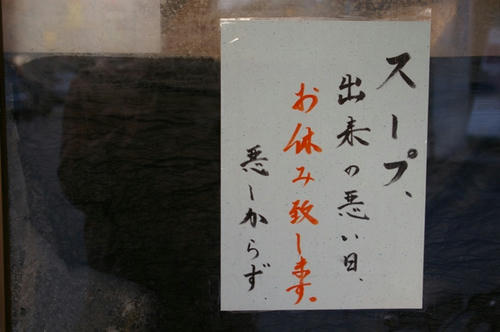 スープ、
出来の悪い日、
お休み致します。
悪しからず